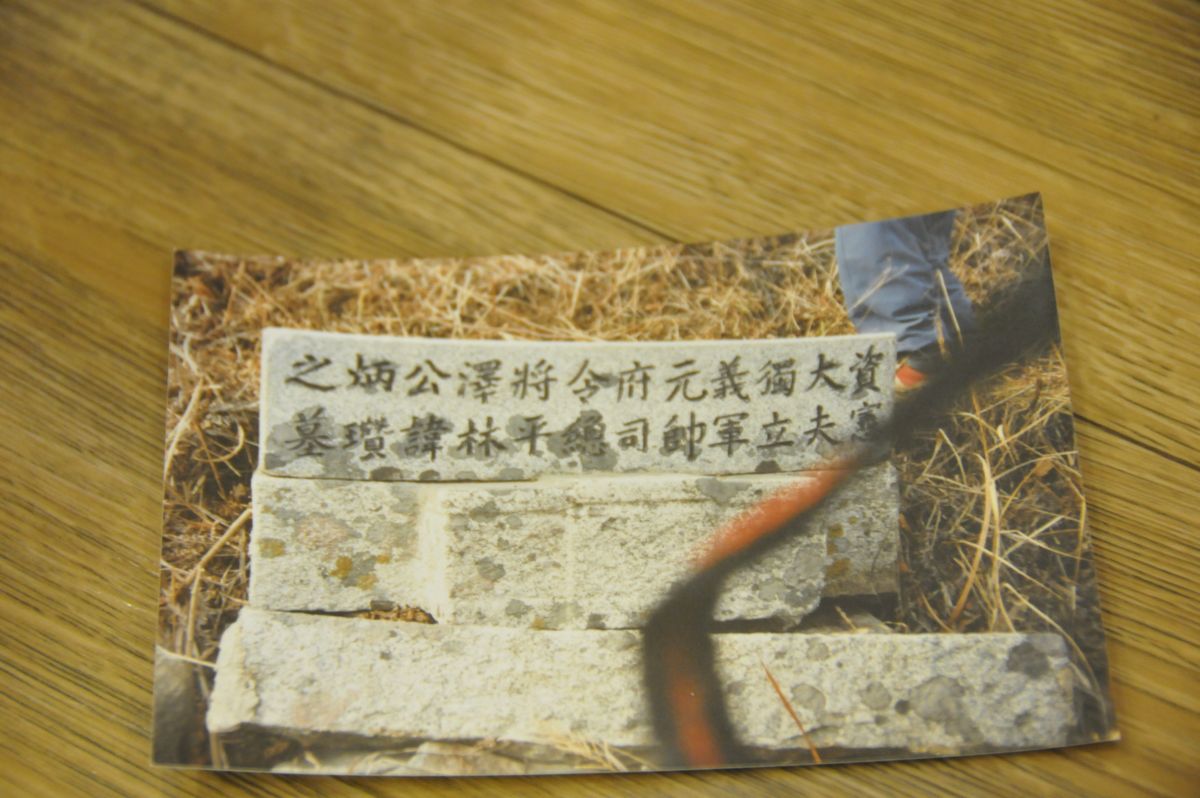 資憲
大夫
獨立
義軍
元帥
府司
令總
將平
澤林
公諱
炳瓚
之墓